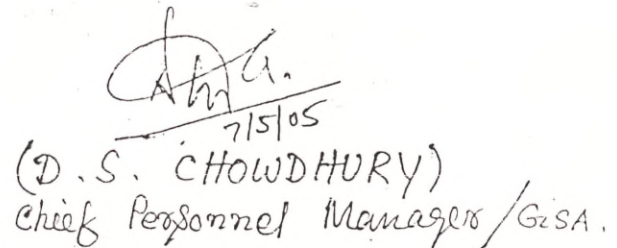 7/5/05
(D.S. CHOWDHURY)
Chief Personnel Manager/GSA.